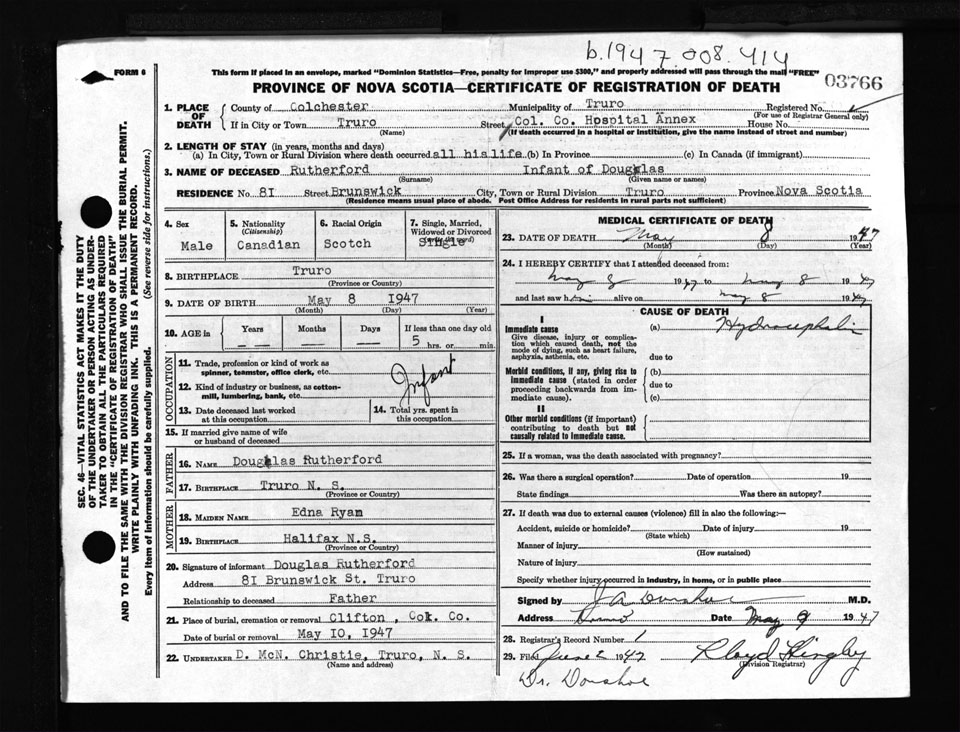 b.1947.008.414
FORM 6
This form if placed in an envelope, marked "Dominion Statistics—Free, penalty for improper use $300," and properly addressed will pass through the mail "FREE"
PROVINCE OF NOVA SCOTIA—CERTIFICATE OF REGISTRATION OF DEATH
03766
1. PLACE OF DEATH County of Colchester Municipality of Truro Registered No.
(For use of Registrar General only)
If in City or Town Truro Street Col. Co. Hospital Annex House No.
(Name) (If death occurred in a hospital or institution, give the name instead of street and number)
2. LENGTH OF STAY (in years, months and days)
(a) In City, Town or Rural Division where death occurred all his life (b) In Province (c) In Canada (if immigrant)
3. NAME OF DECEASED Rutherford Infant of Douglas
(Surname) (Given name or names)
RESIDENCE No. 81 Street Brunswick City, Town or Rural Division Truro Province Nova Scotia
(Residence means usual place of abode. Post Office Address for residents in rural parts not sufficient)
4. Sex Male
5. Nationality (Citizenship) Canadian
6. Racial Origin Scotch
7. Single, Married, Widowed or Divorced Single
8. BIRTHPLACE Truro
(Province or Country)
9. DATE OF BIRTH May 8 1947
(Month) (Day) (Year)
10. AGE in Years Months Days If less than one day old
-- -- -- -- -- 5 hrs. or min.
OCCUPATION
11. Trade, profession or kind of work as spinner, teamster, office clerk, etc.
12. Kind of industry or business, as cotton-mill, lumbering, bank, etc.
Infant
13. Date deceased last worked at this occupation
14. Total yrs. spent in this occupation
15. If married give name of wife or husband of deceased
FATHER
16. NAME Douglas Rutherford
17. BIRTHPLACE Truro N. S.
(Province or Country)
MOTHER
18. MAIDEN NAME Edna Ryan
19. BIRTHPLACE Halifax N.S.
(Province or Country)
20. Signature of informant Douglas Rutherford
Address 81 Brunswick St. Truro
Relationship to deceased Father
21. Place of burial, cremation or removal Clifton, Col. Co.
Date of burial or removal May 10, 1947
22. UNDERTAKER D. McN. Christie, Truro, N. S.
(Name and address)
MEDICAL CERTIFICATE OF DEATH
23. DATE OF DEATH May 8 1947
(Month) (Day) (Year)
24. I HEREBY CERTIFY that I attended deceased from:
May 8 1947 to May 8 1947
and last saw him alive on May 8 1947
CAUSE OF DEATH
I
Immediate cause (a) Hydrocephalis
Give disease, injury or complication which caused death, not the mode of dying, such as heart failure, asphyxia, asthenia, etc.
due to
Morbid conditions, if any, giving rise to immediate cause (stated in order proceeding backwards from immediate cause). (b)
due to
(c)
II
Other morbid conditions (if important) contributing to death but not causally related to immediate cause.
25. If a woman, was the death associated with pregnancy?
26. Was there a surgical operation? Date of operation 19
State findings Was there an autopsy?
27. If death was due to external causes (violence) fill in also the following:—
Accident, suicide or homicide? Date of injury 19
(State which)
Manner of injury
(How sustained)
Nature of injury
Specify whether injury occurred in industry, in home, or in public place
Signed by J A Donahoe M.D.
Address Truro Date May 9 1947
28. Registrar's Record Number 1
29. Filed June 2 1947 Lloyd
(Division Registrar)
Dr. Donahoe
SEC. 46—VITAL STATISTICS ACT MAKES IT THE DUTY
OF THE UNDERTAKER OR PERSON ACTING AS UNDER-
TAKER TO OBTAIN ALL THE PARTICULARS REQUIRED
IN THE "CERTIFICATE OF REGISTRATION OF DEATH"
AND TO FILE THE SAME WITH THE DIVISION REGISTRAR WHO SHALL ISSUE THE BURIAL PERMIT.
WRITE PLAINLY WITH UNFADING INK. THIS IS A PERMANENT RECORD.
Every item of information should be carefully supplied. (See reverse side for instructions.)